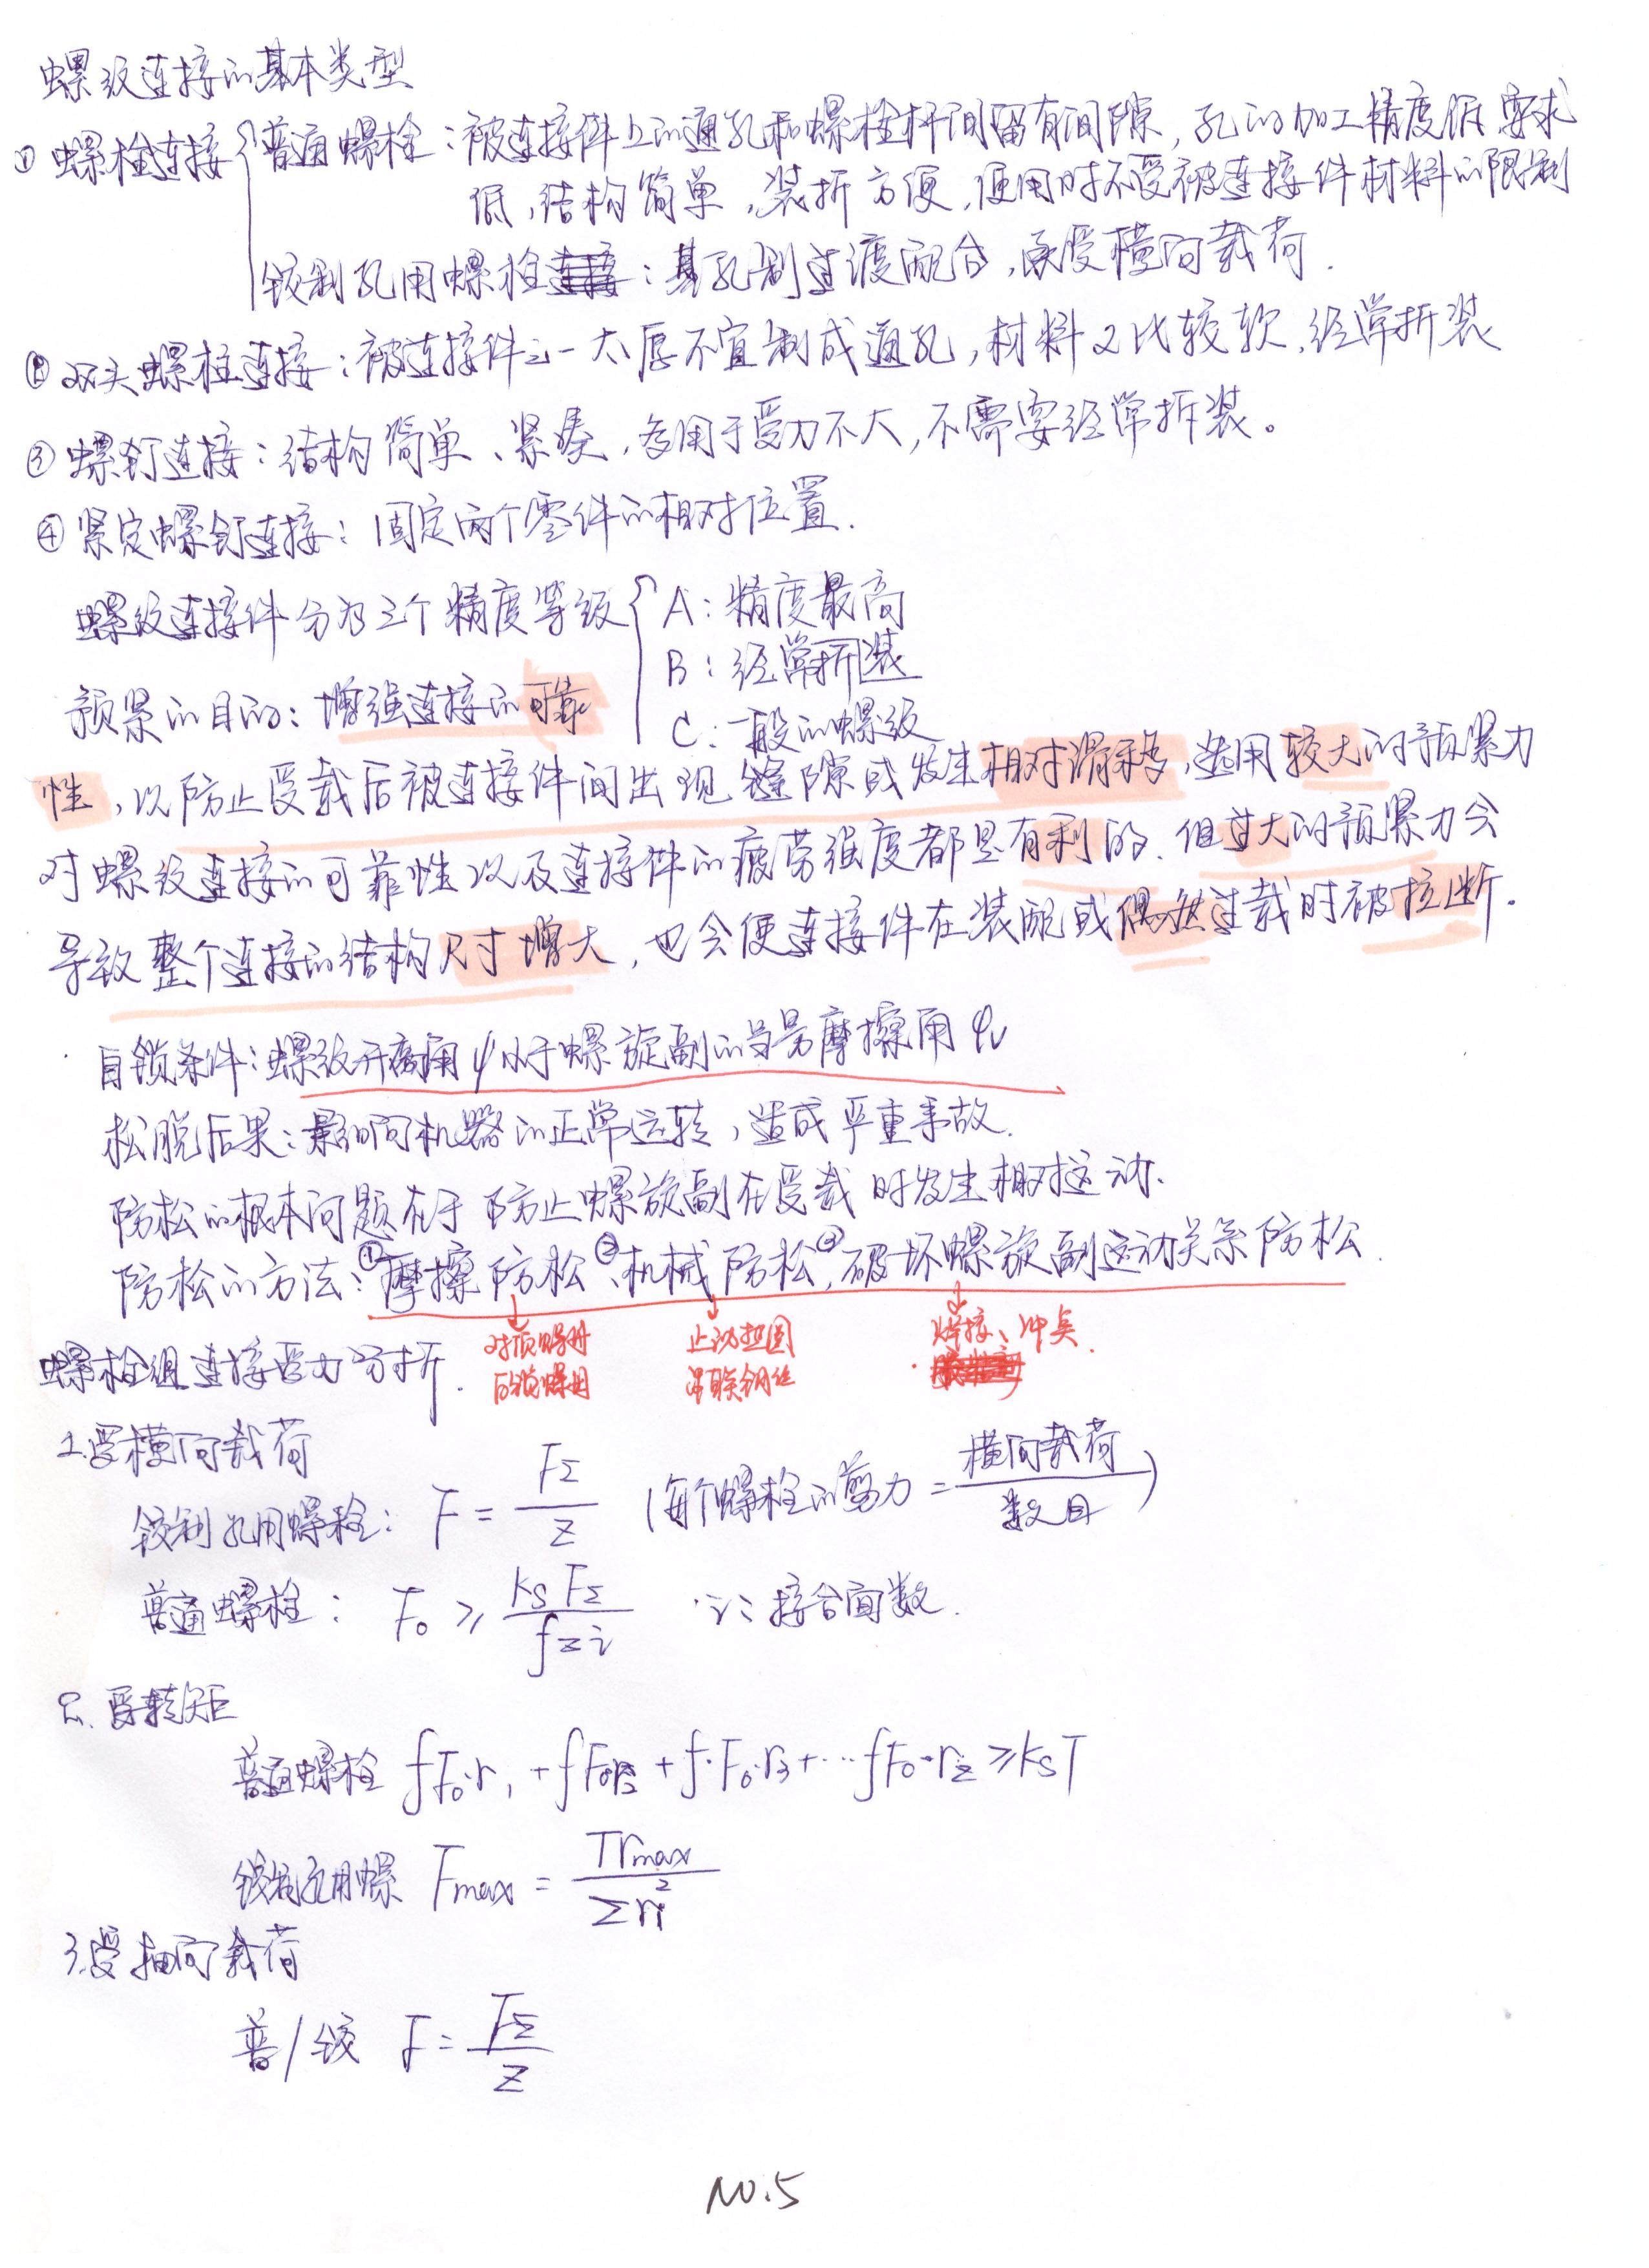 螺纹连接的基本类型
① 螺栓连接 { 普通螺栓:被连接件上的通孔和螺栓杆间留有间隙,孔的加工精度低,要求
低,结构简单,装拆方便,使用时不受被连接件材料的限制
铰制孔用螺栓:基孔制过渡配合,承受横向载荷.
② 双头螺柱连接:被连接件之一太厚不宜制成通孔,材料又比较软,经常拆装
③ 螺钉连接:结构简单、紧凑,多用于受力不大,不需要经常拆装。
④ 紧定螺钉连接:固定两个零件的相对位置.
螺纹连接件分为三个精度等级 { A:精度最高
B:经常拆装
C:一般的螺纹
预紧的目的:增强连接的可靠
性,以防止受载后被连接件间出现缝隙或发生相对滑移,选用较大的预紧力
对螺纹连接的可靠性以及连接件的疲劳强度都是有利的.但过大的预紧力会
导致整个连接的结构尺寸增大,也会使连接件在装配或偶然过载时被拉断.
自锁条件:螺纹升角ψ小于螺旋副的当量摩擦角φv
松脱后果:影响机器的正常运转,造成严重事故.
防松的根本问题在于防止螺旋副在受载时发生相对运动.
防松的方法:①摩擦防松②、机械防松③,破坏螺旋副运动关系防松.
对顶螺母 止动垫圈 焊接、冲点.
自锁螺母 串联钢丝
螺栓组连接受力分析.
1.受横向载荷
铰制孔用螺栓: F = FΣ/z (每个螺栓的剪力 = 横向载荷/数目)
普通螺栓: F₀ ≥ KsFΣ/fzi i:接合面数.
2.受转矩
普通螺栓 fF₀·r₁ + fF₀r₂ + f·F₀·r₃ + ··· fF₀·rz ≥ KsT
铰制孔用螺 Fmax = Trmax/Σri²
3.受轴向载荷
普/铰 F = FΣ/z
NO.5